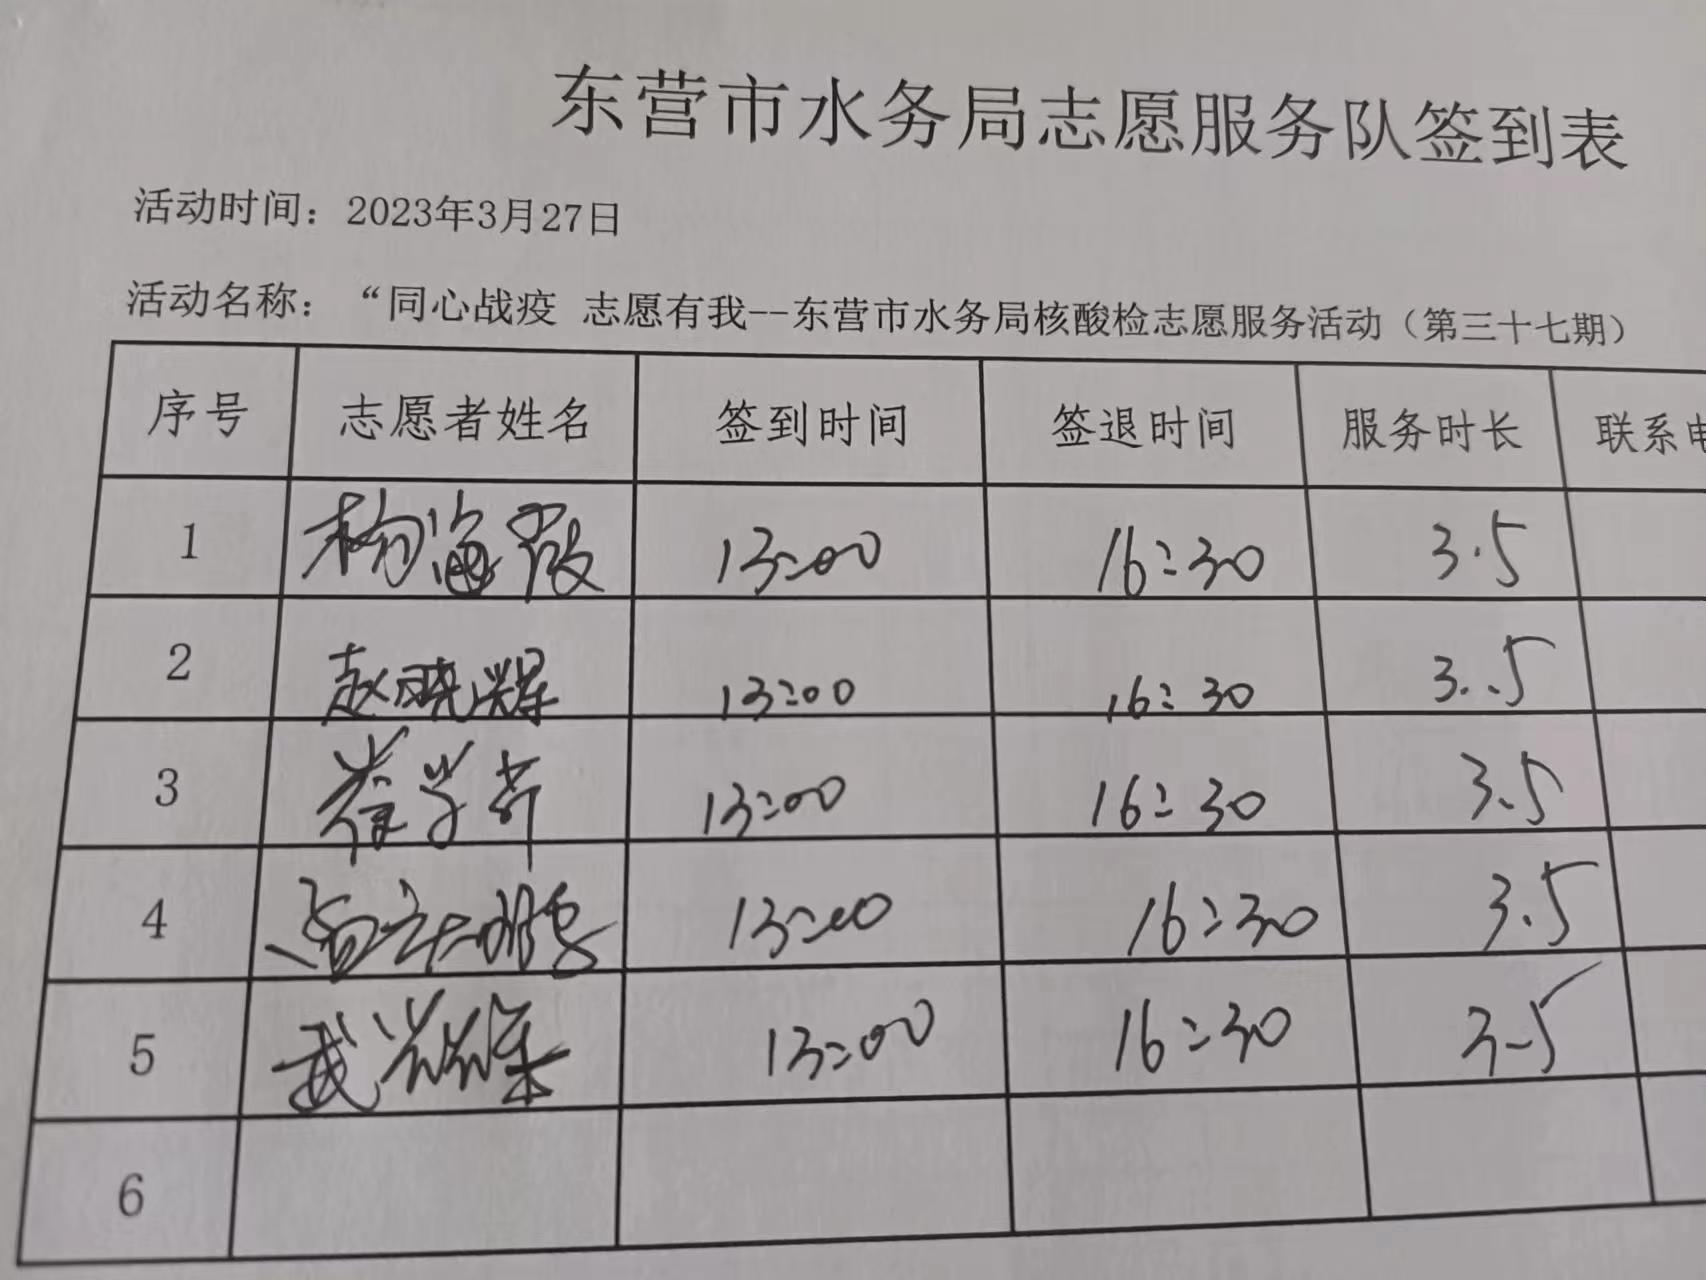 东营市水务局志愿服务队签到表
活动时间：2023年3月27日
活动名称：“同心战疫 志愿有我--东营市水务局核酸检志愿服务活动（第三十七期）
序号 志愿者姓名 签到时间 签退时间 服务时长 联系
1 杨海霞 13:00 16:30 3.5
2 赵晓辉 13:00 16:30 3.5
3 崔学 13:00 16:30 3.5
4 13:00 16:30 3.5
5 武 13:00 16:30 3.5
6